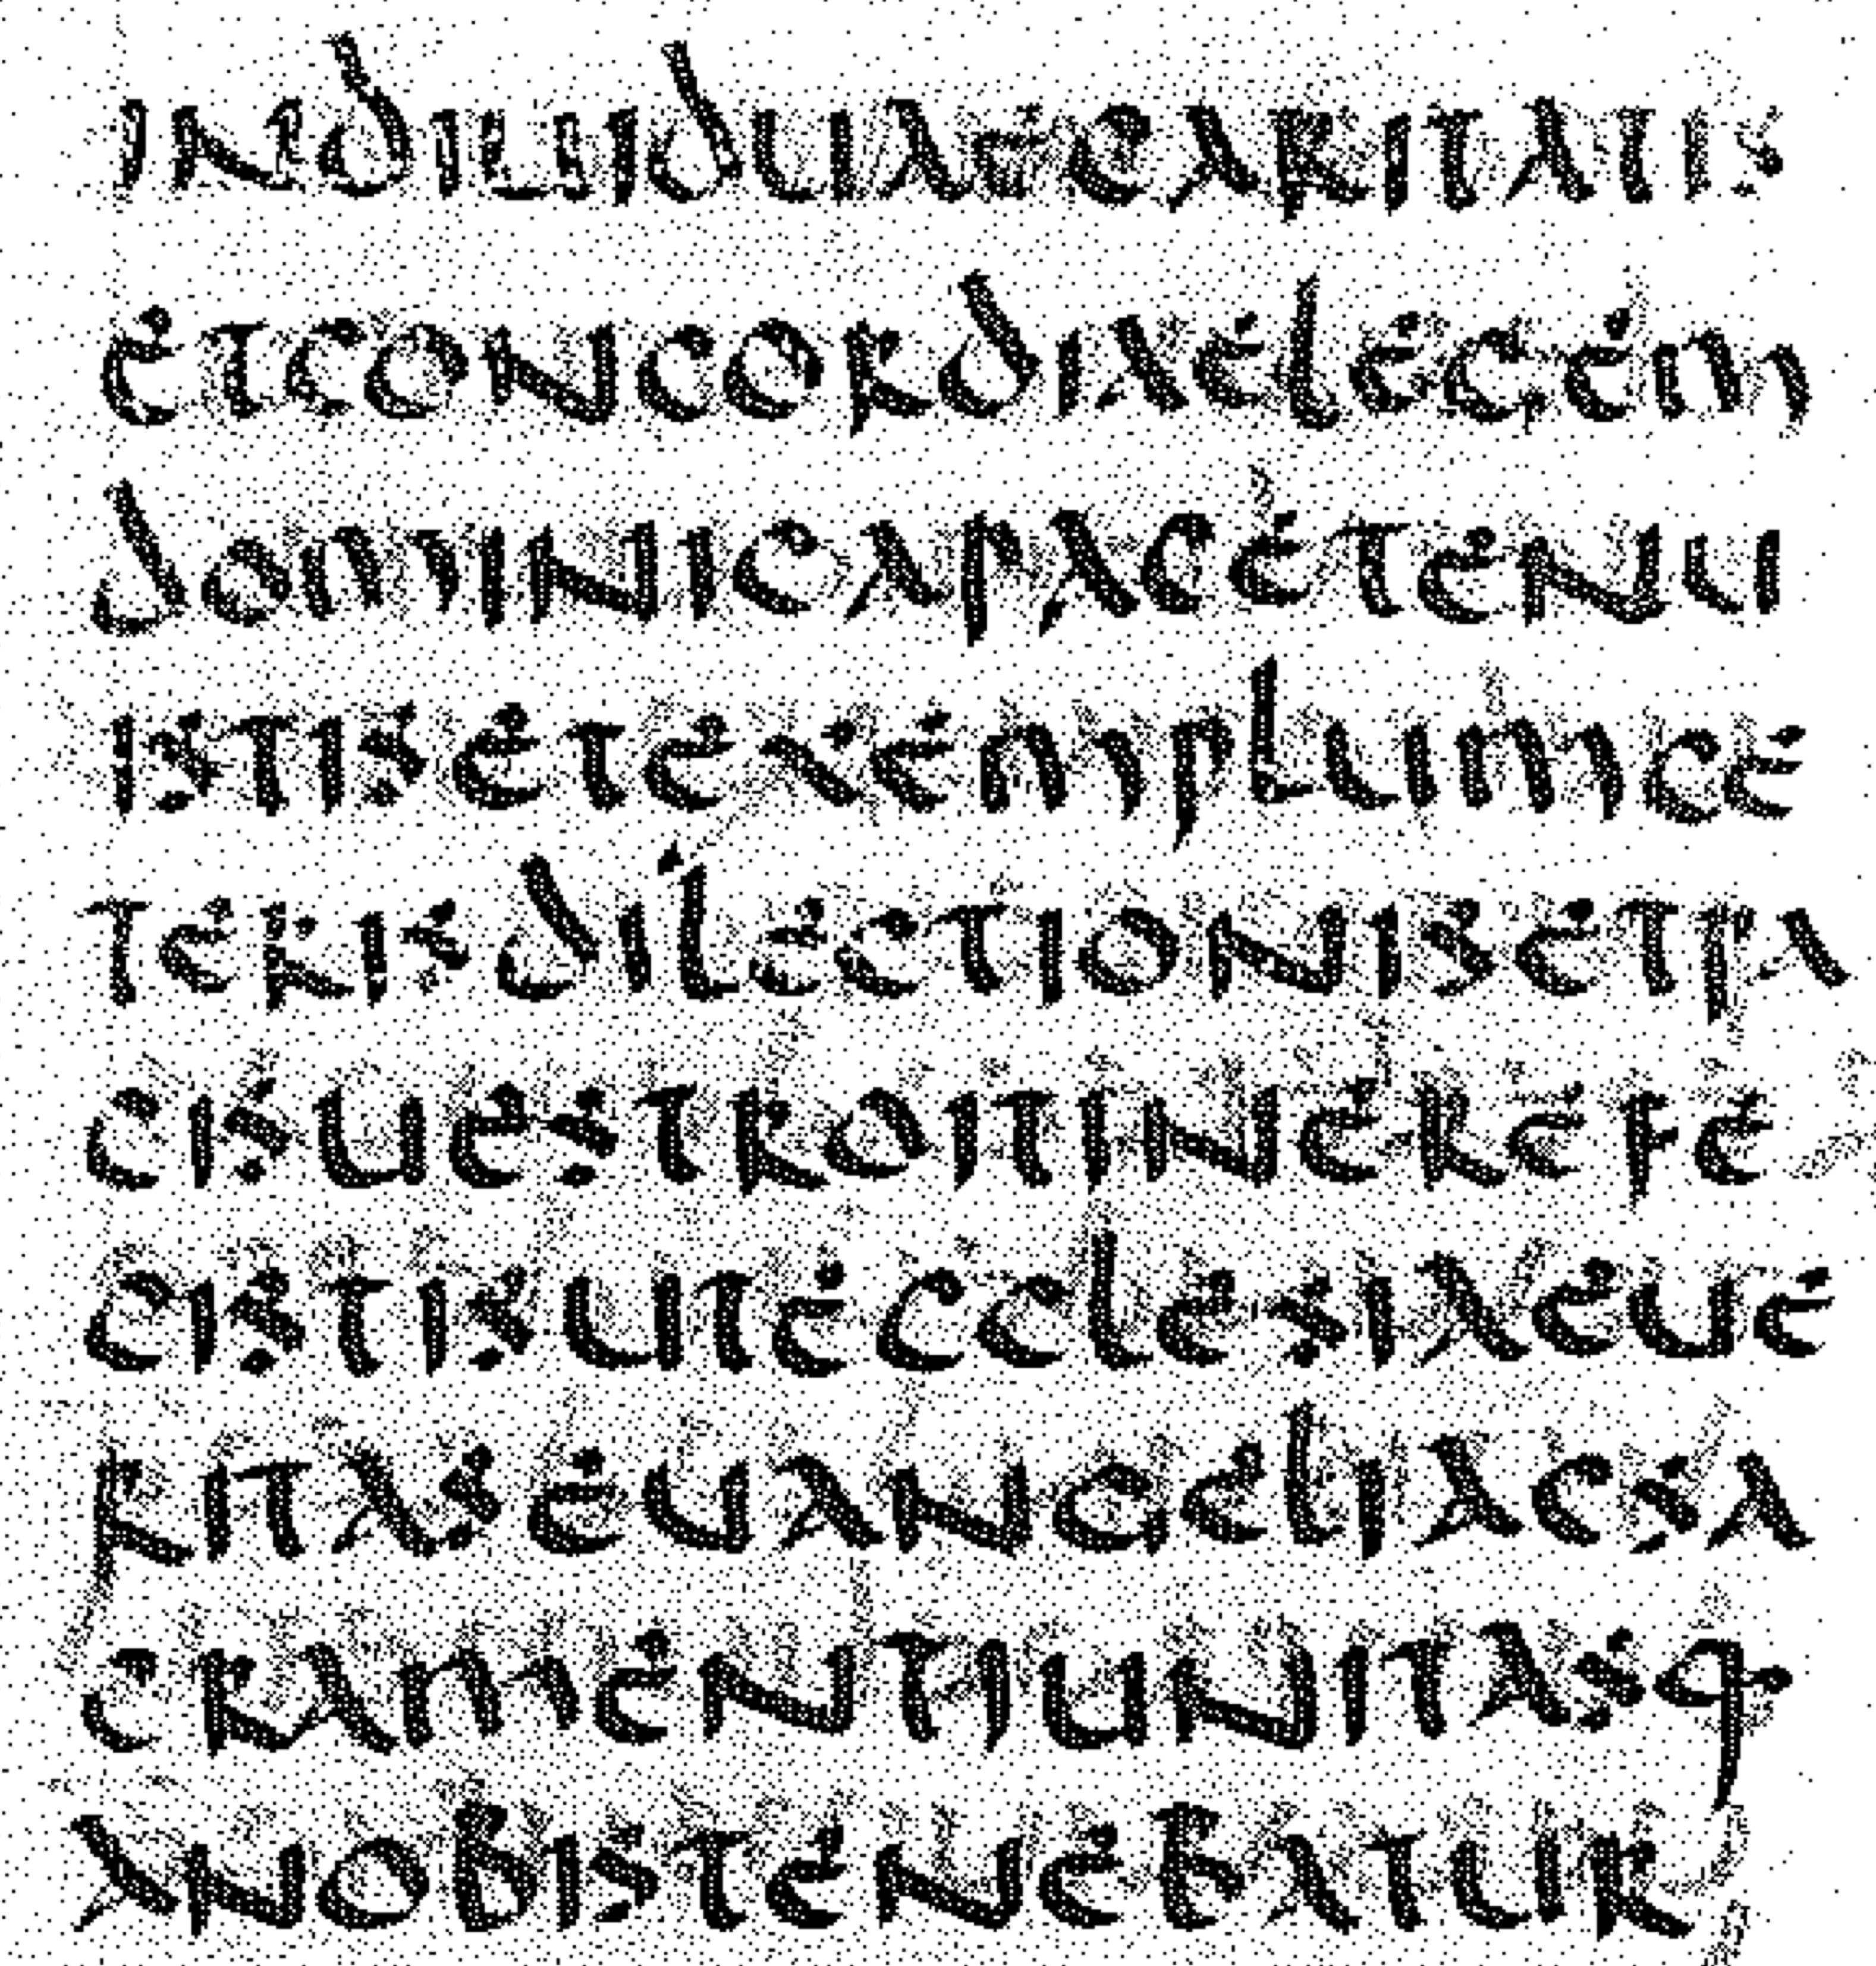 INDIUIDUAECARITATIS
ETCONCORDIAELEGEM
DOMINICAPACETENUI
ISTISETEXEMPLUMCE
TERISDILECTIONISETPA
CISUESTROITINEREFE
CISTISUTECCLESIAEUE
RITASEUANGELIACSA
CRAMENTIUNITASQ
ANOBISTENEBATUR